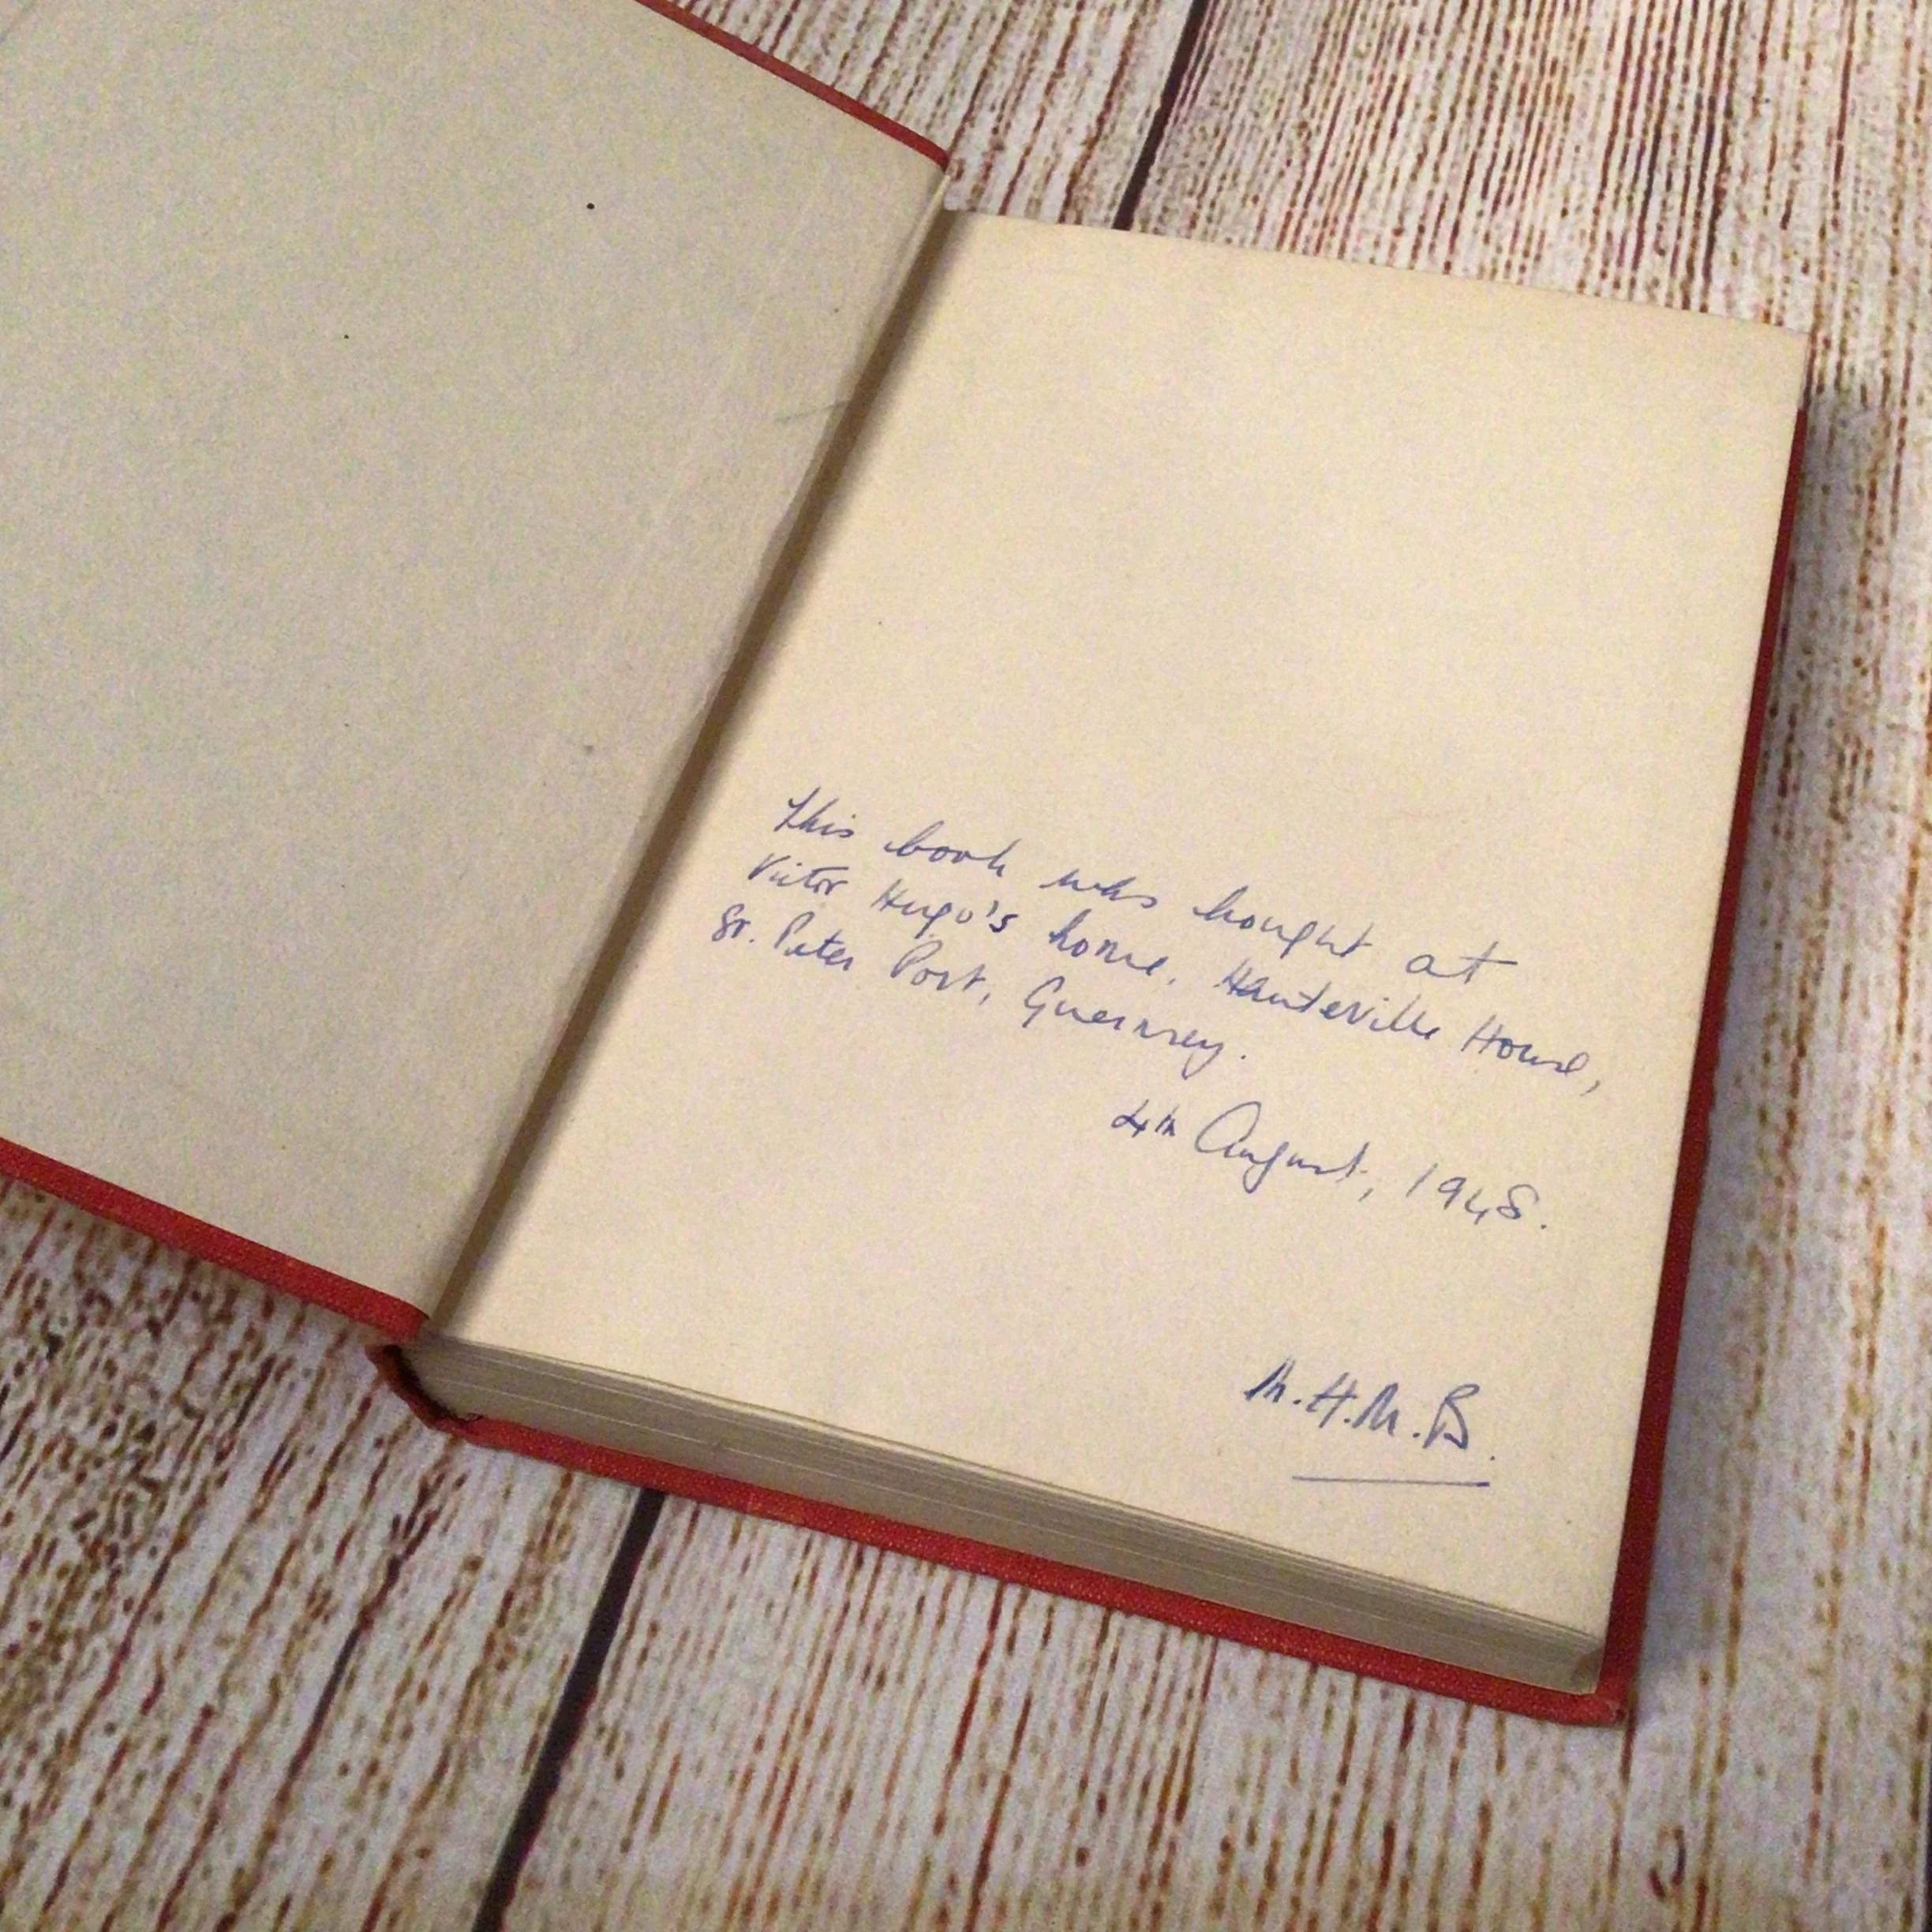 This book was bought at
Victor Hugo's home, Hauteville House,
St. Peter Port, Guernsey.
4th August, 1948.
M.H.M.B.